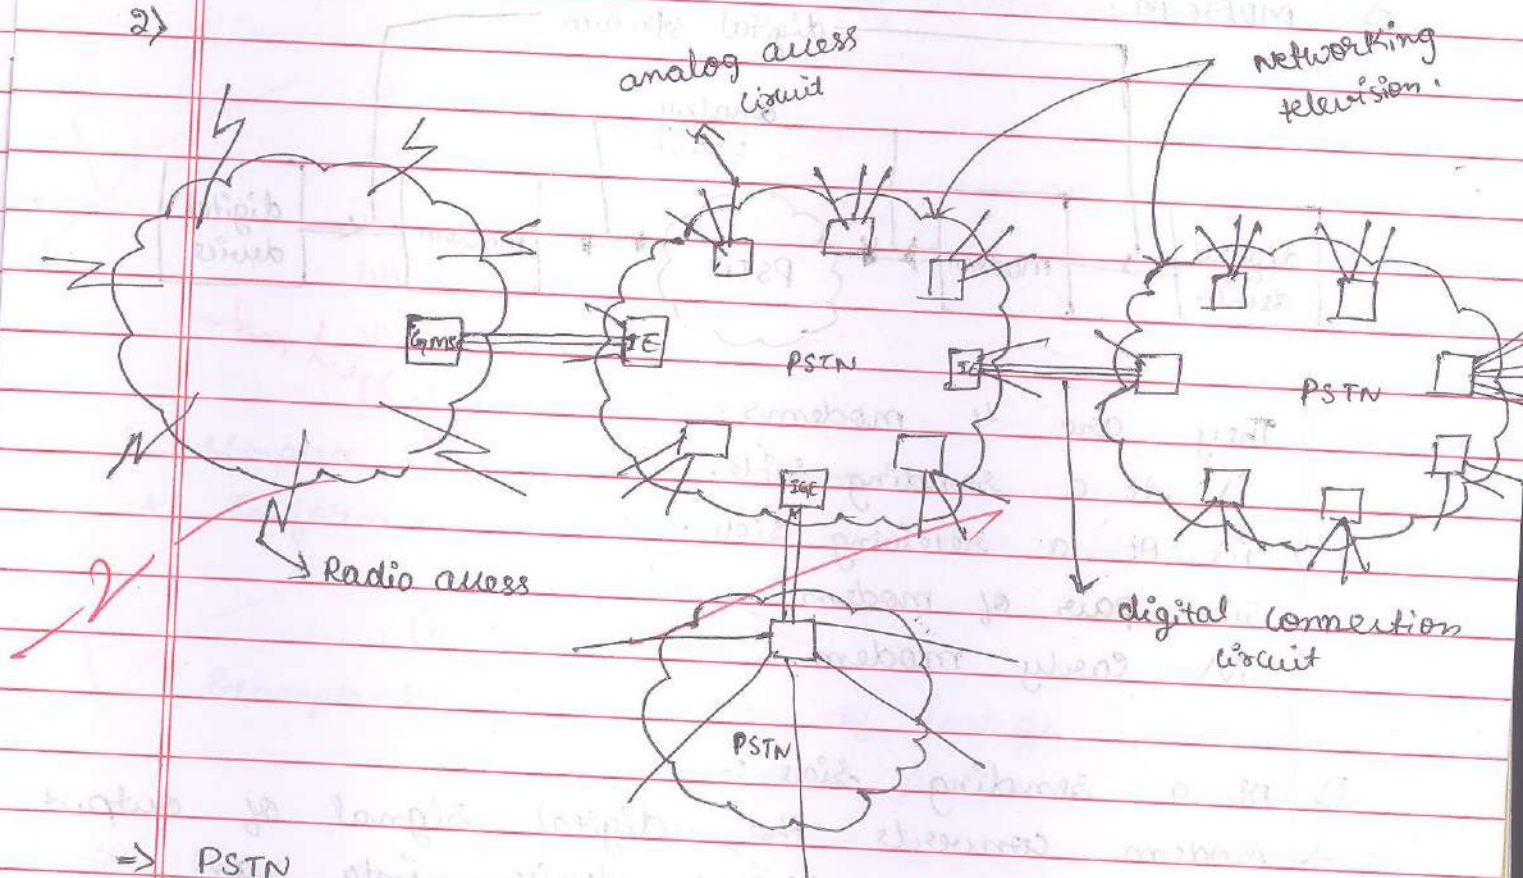 2)
analog access
circuit
Networking
television.
GMSC
IE
PSTN
IE
PSTN
IGE
Radio access
digital connection
circuit
PSTN
=> PSTN